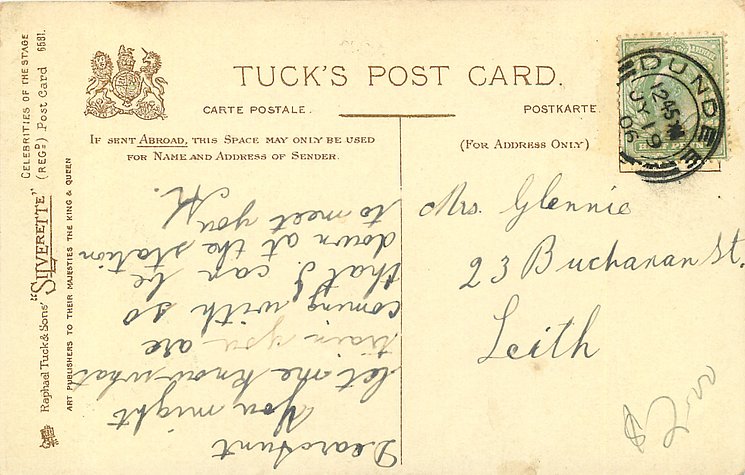 TUCK'S POST CARD.
CARTE POSTALE.
POSTKARTE
IF SENT ABROAD, THIS SPACE MAY ONLY BE USED
FOR NAME AND ADDRESS OF SENDER.
(FOR ADDRESS ONLY)
DUNDEE
1245 PM
JY 19
06
HALF PENNY
Mrs. Glennie
23 Buchanan St.
Leith
Dear Aunt
You might
let me know what
train you are
coming with so
that I can be
down at the station
to meet you
M.
CELEBRITIES OF THE STAGE
Raphael Tuck & Sons' "SILVERETTE" (REGD) Post Card 6581.
ART PUBLISHERS TO THEIR MAJESTIES THE KING & QUEEN
$2.00